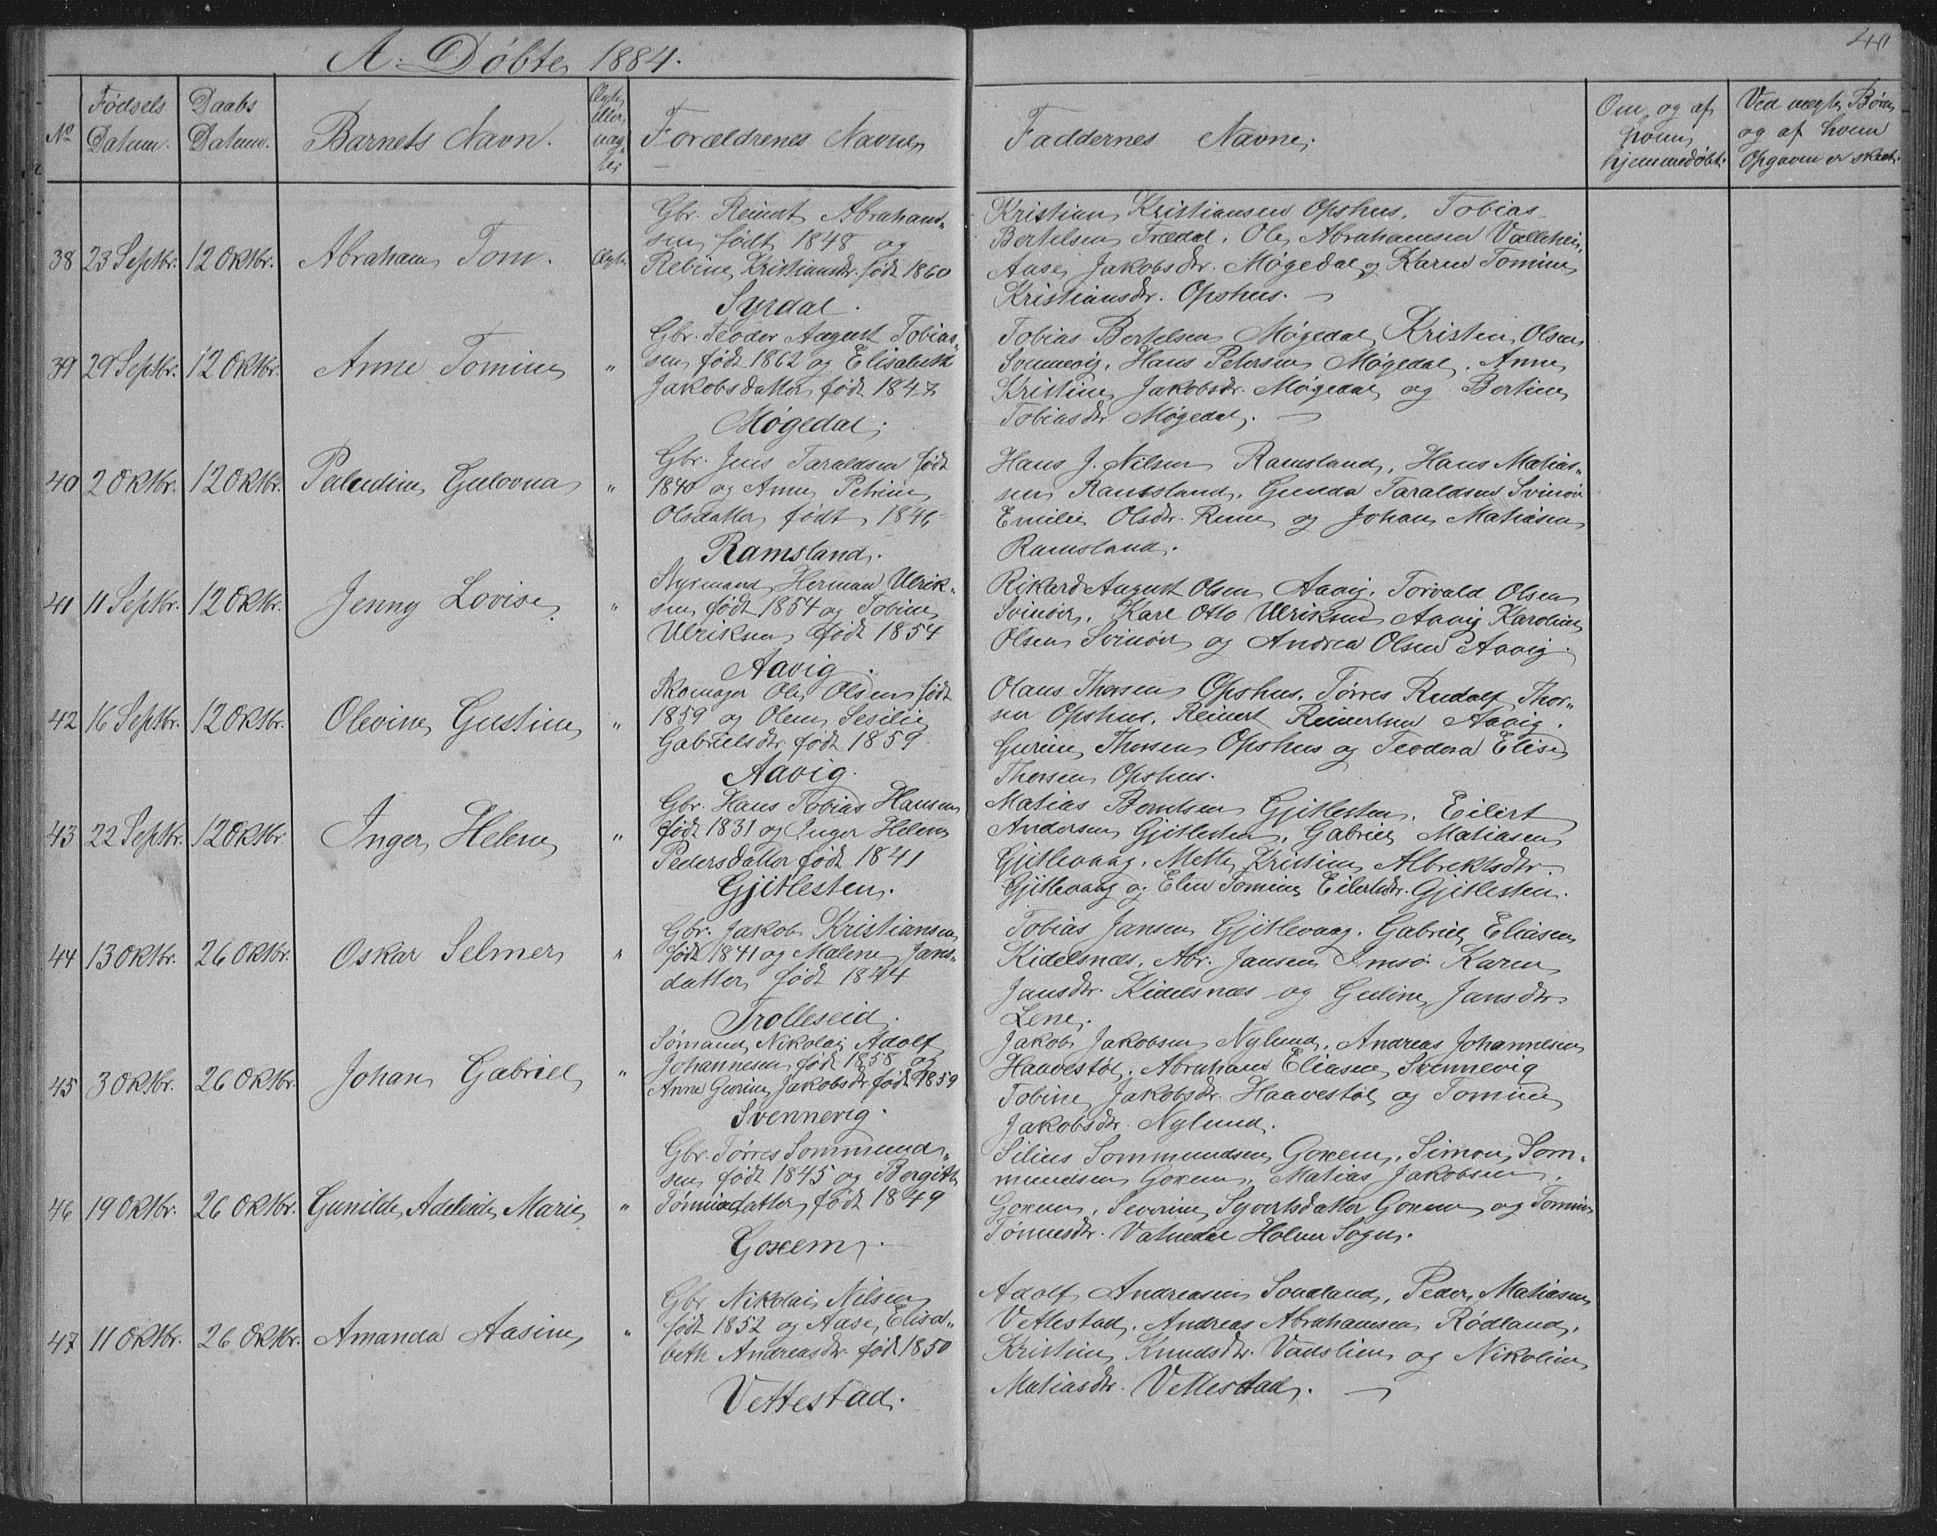 40
A. Døbte 1884.
No
Fødsels
Datum.
Daabs
Datum.
Barnets Navn.
Ægte
eller
uæg-
te
Forældrenes Navne
Faddernes Navne.
Om og af
hvem
hjemmedøbt.
Ved uægte Børn
og af hvem
Opgaven er skeet.
38 23 Septbr. 12 Oktbr. Abraham Tom. Ægte
Gbr. Reinert Abraham-
sen født 1848 og
Rebine Kristiansdr. født 1860
Syrdal.
Kristian Kristiansen Opshus, Tobias
Bertelsen Trædal, Ole Abrahamsen
Aase Jakobsdr. Møgedal og Karen Tomine
Kristiansdr. Opshus.
39 29 Septbr. 12 Oktbr. Anne Tomine "
Gbr. Teodor August Tobias-
sen født 1862 og Elisabeth
Jakobsdatter født 1847
Møgedal.
Tobias Bertelsen Møgedal, Kristen Olsen
Svennevig, Hans Petersen Møgedal, Anne
Kristine Jakobsdr. Møgedal og Bertine
Tobiasdr. Møgedal.
40 2 Oktbr. 12 Oktbr. Paludine Gulovna "
Gbr. Jens Taraldsen født
1840 og Anne Petrine
Olsdatter født 1846
Ramsland.
Hans J. Nilsen Ramsland, Hans Matias-
sen Ramsland, Gunda Taraldsen Svinør
Emilie Olsdr. og Johan Matiasen
Ramsland.
41 11 Septbr. 12 Oktbr. Jenny Lovise. "
Styrmand Herman Ulrik-
sen født 1854 og Tobine
Ulriksen født 1854
Aavig.
Rikard August Olsen Aavig, Torvald Olsen
Svinør, Karl Otto Ulriksen Aavig Karoline
Olsen Svinør og Andrea Olsen Aavig.
42 16 Septbr. 12 Oktbr. Olevine Gustine "
Skomager Ole Olsen født
1859 og Olene Sesilie
Gabrielsdr. født 1859.
Aavig.
Olaus Thorsen Opshus, Tørres Rudolf Thor-
sen Opshus, Reinert Reinertsen Aavig.
Gurine Thorsen Opshus og Teodora Elise
Thorsen Opshus.
43 22 Septbr. 12 Oktbr. Inger Helene "
Gbr. Hans Tobias Hansen
født 1831 og Inger Helene
Pedersdatter født 1841
Gjitlesten.
Matias Berntsen Gjitlesten, Eilert
Andersen Gjitlesten, Gabriel Matiasen
Gjitlevaag, Mette Kristine Albrektsdr.
Gjitlevaag og Elen Tomine Eilertsdr. Gjitlesten.
44 13 Oktbr. 26 Oktbr. Oskar Selmer "
Gbr. Jakob Kristiansen
født 1841 og Malene Jans-
datter født 1844
Trolleseid.
Tobias Jansen Gjitlevaag, Gabriel Eliasen
Kidelsnæs, Abr. Jansen Imsø Karen
Jansdr. Kidelsnæs og Guline Jansdr.
Lene.
45 3 Oktbr. 26 Oktbr. Johan Gabriel "
Sømand Nikolai Adolf
Johannesen født 1858 og
Anne Gurine Jakobsdr. født 1859
Svennevig.
Jakob Jakobsen Nylund, Andreas Johannesen
Haavestøl, Abraham Eliasen Svennevig
Tobine Jakobsdr. Haavestøl og Tomine
Jakobsdr. Nylund.
46 19 Oktbr. 26 Oktbr. Gunilde Adeleide Marie "
Gbr. Tørres Sommund-
sen født 1845 og Borgitte
Tønnesdatter født 1849
Goxem.
Silius Sommundsen Goxem, Simon Som-
mundsen Goxem, Matias Jakobsen
Goxem, Severine Syvertsdatter Goxem og Tomine
Tønnesdr. Vatnedal Holum Sogn.
47 11 Oktbr. 26 Oktbr. Amanda Aasine "
Gbr. Nikolai Nilsen
født 1852 og Aase Elisa-
beth Andreasdr. født 1850
Vettestad.
Adolf Andreasen Sondland, Peder Matiasen
Vettestad, Andreas Abrahamsen Rødland,
Kristine Knudsdr. Vadslien og Nikoline
Matiasdr. Vettestad.